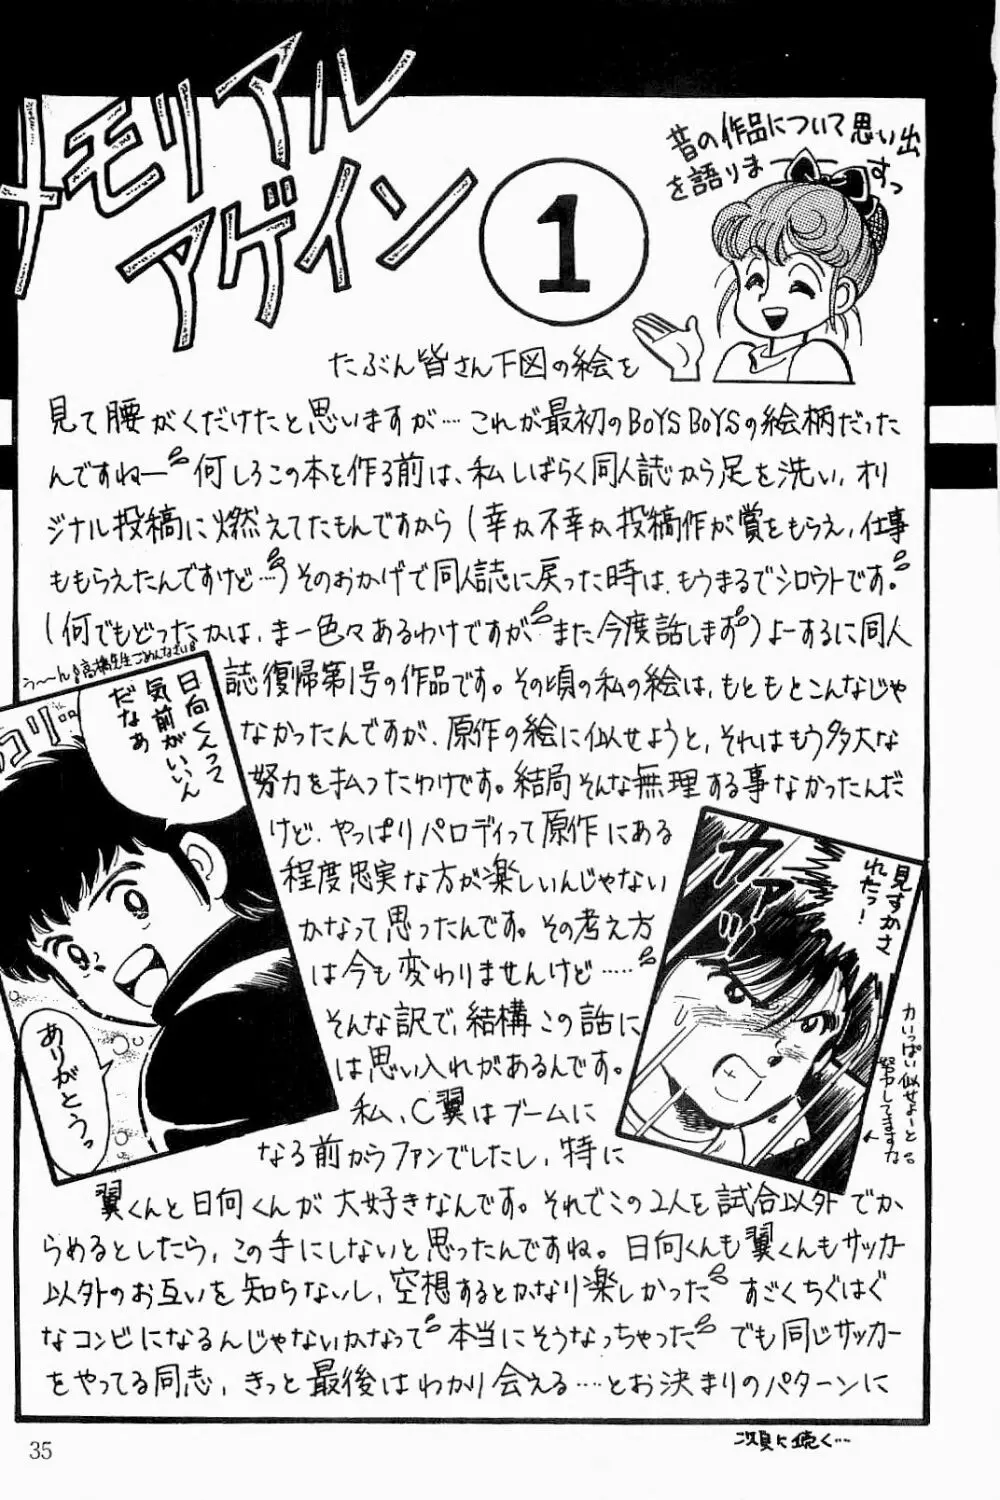 メモリアル
アゲイン
1
昔の作品について思い出
を語りますっ
たぶん皆さん下図の絵を
見て腰がくだけたと思いますが…これが最初のBOYS BOYSの絵柄だった
んですねー 何しろこの本を作る前は、私しばらく同人誌から足を洗い、オリ
ジナル投稿に燃えてたもんですから(幸か不幸か投稿作が賞をもらえ、仕事
ももらえたんですけど…)そのおかげで同人誌に戻った時は、もうまるでシロウトです。
(何でもどったかは、ま一色々あるわけですがまた今度話します)よーするに同人
誌復帰第1号の作品です。その頃の私の絵は、もともとこんなじゃ
なかったんですが、原作の絵に似せようと、それはもう多大な
努力を払ったわけです。結局そんな無理する事なかったんだ
けど、やっぱりパロディって原作にある
程度忠実な方が楽しいんじゃない
かなって思ったんです。その考え方
は今も変わりませんけど……
そんな訳で、結構この話に
は思い入れがあるんです。
私、C翼はブームに
なる前からファンでしたし、特に
翼くんと日向くんが大好きなんです。それでこの2人を試合以外でか
らめるとしたら、この手にしないと思ったんですね。日向くんも翼くんもサッカー
以外のお互いを知らないし、空想するとかなり楽しかった すごくちぐはぐ
なコンビになるんじゃないかなって 本当にそうなっちゃった でも同じサッカー
をやってる同志、きっと最後はわかり会える…とお決まりのパターンに
う〜〜ん 高橋先生ごめんなさい
コリ…
日向くんって
気前がいいん
だなあ
ありがとうっ
カアァッ
見すかさ
れたっ!
力いっぱい似せよーと
努力してますな。
次頁に続く…
35